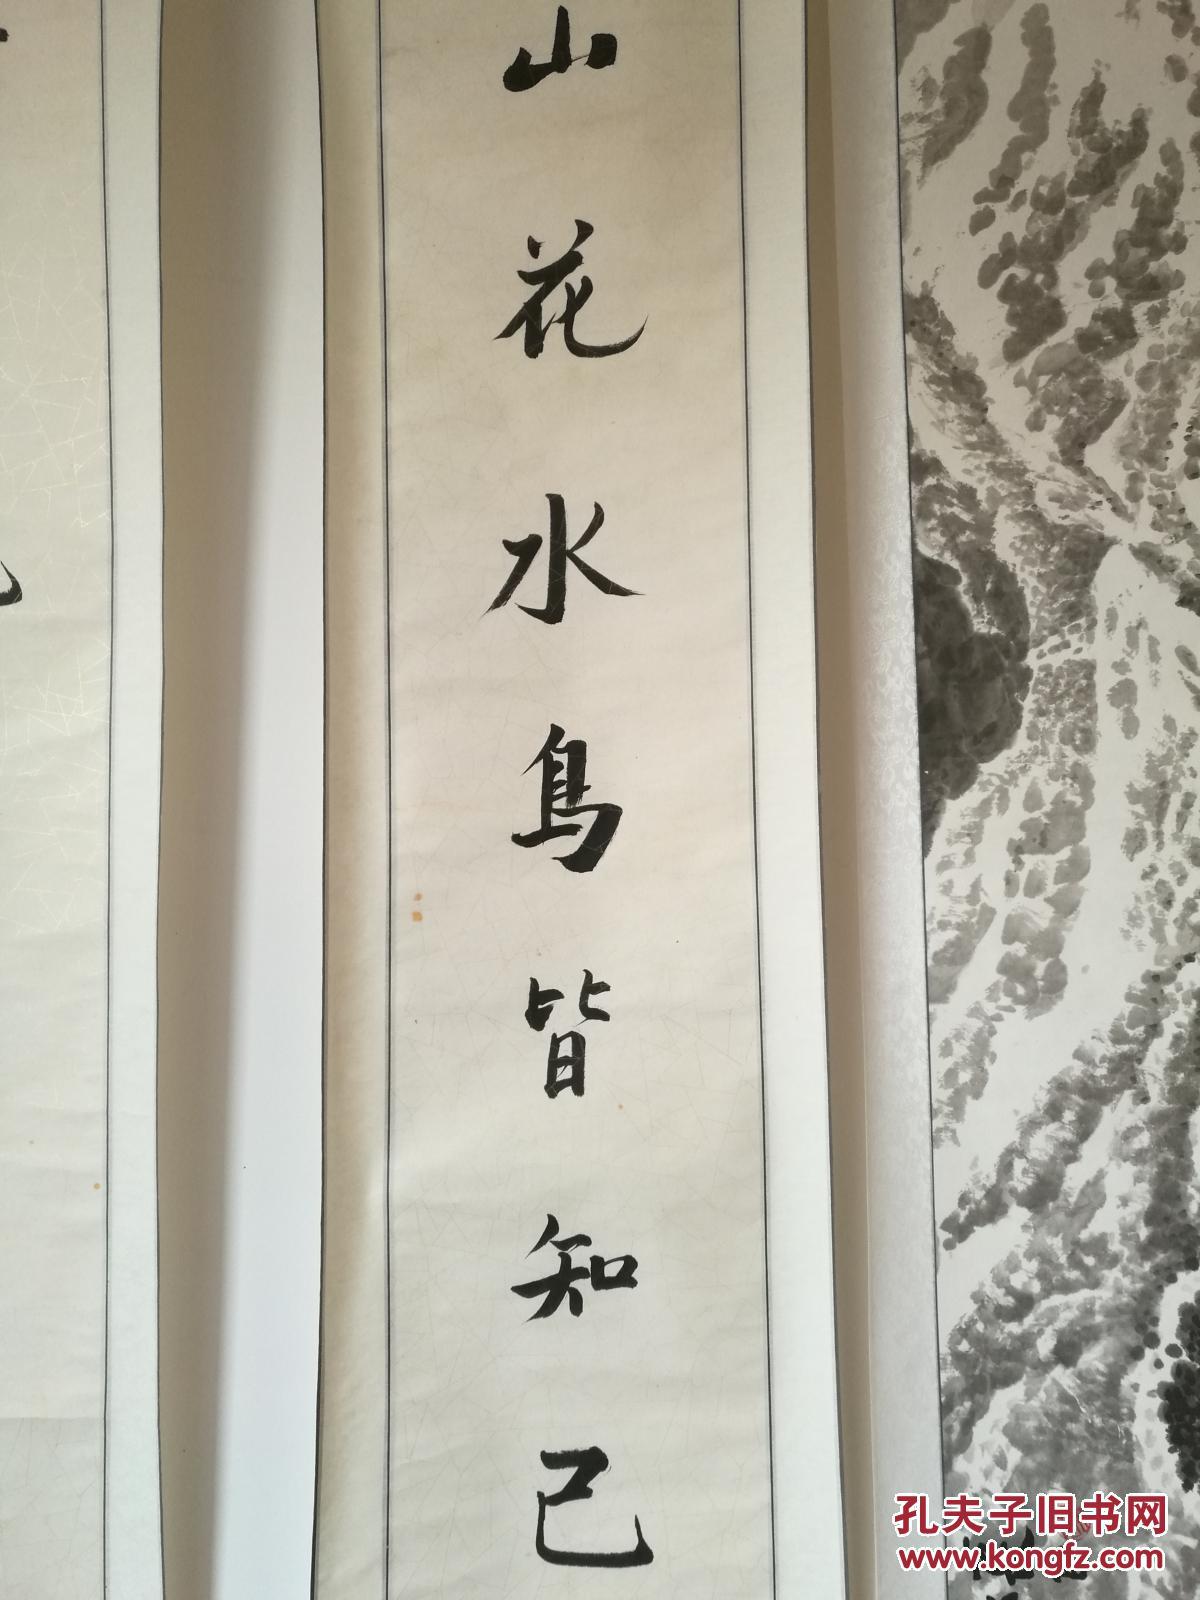 山花水鳥皆知己
孔夫子旧书网
www.kongfz.com